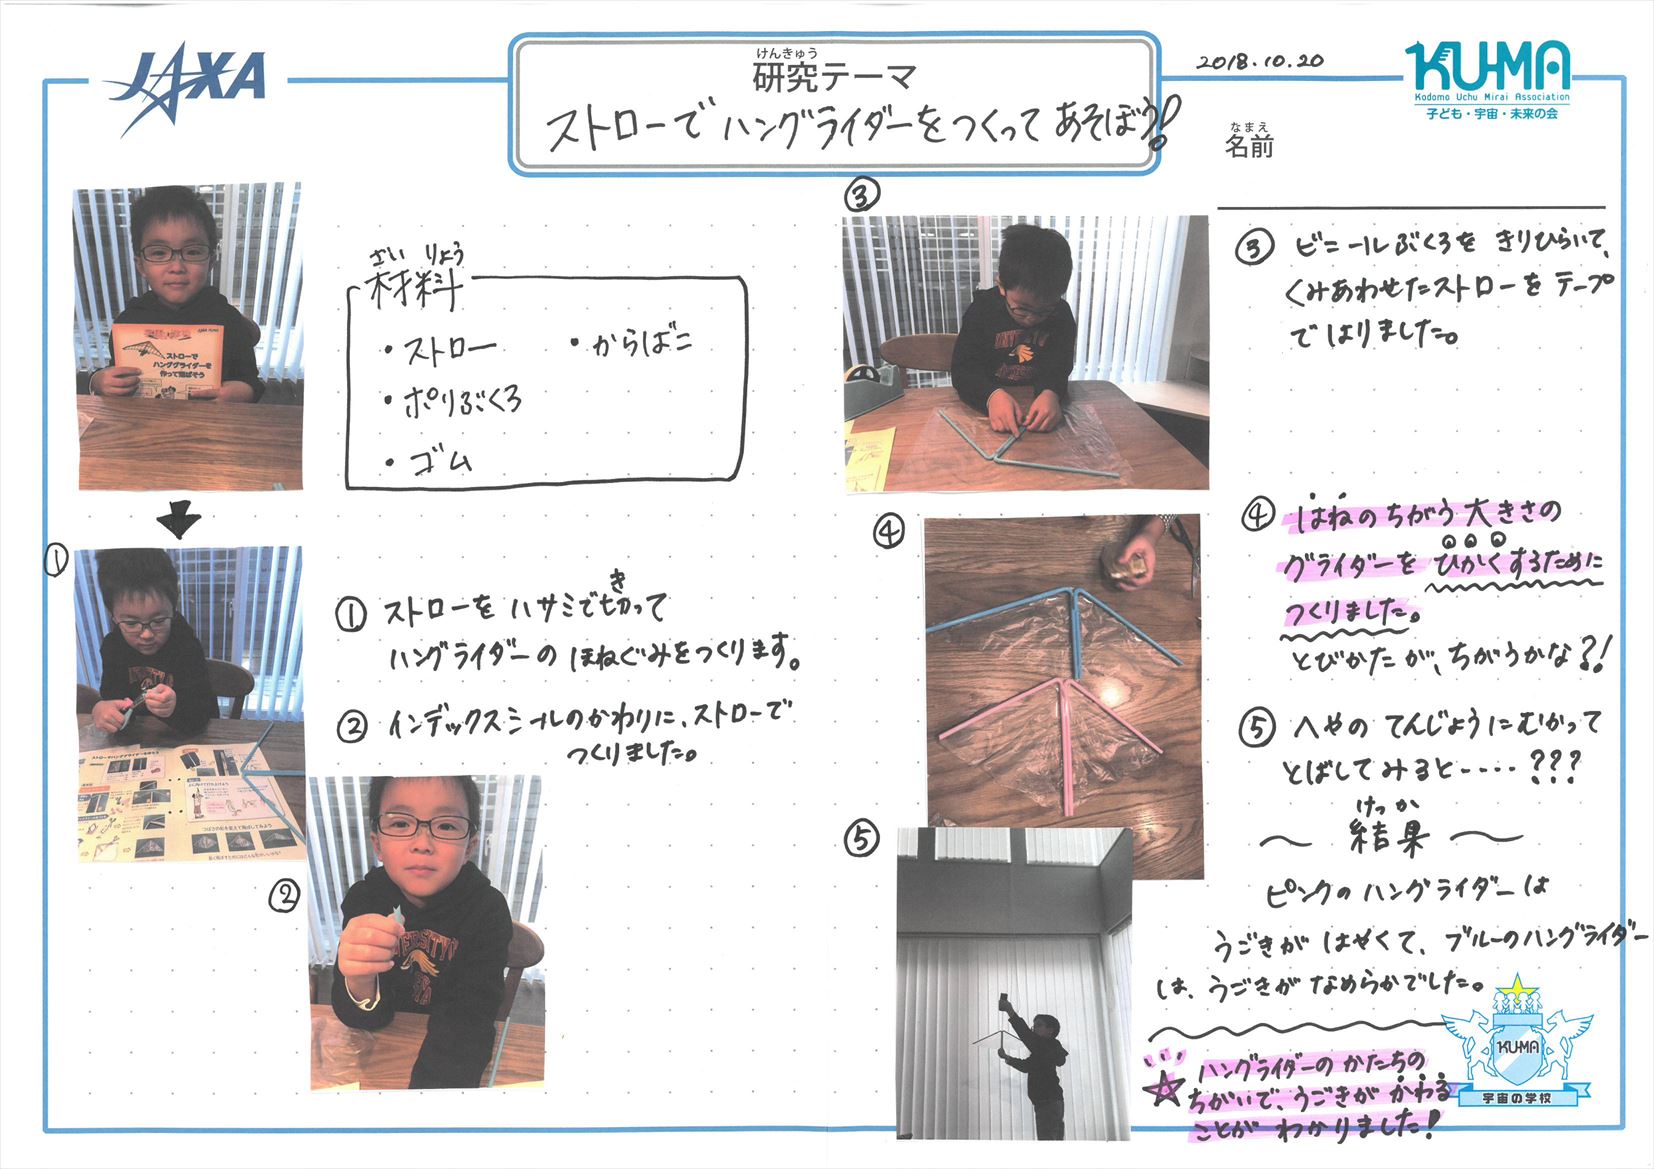 JAXA
けんきゅう
研究テーマ
ストローでハングライダーをつくってあそぼう!
2018.10.20
KU-MA
Kodomo Uchu Mirai Association
子ども・宇宙・未来の会
なまえ
名前
JAXA KUMA
ストローで
ハンググライダーを
作って飛ばそう
ざいりょう
材料
・ストロー
・からばこ
・ポリぶくろ
・ゴム
①
ストローでハンググライダーを作ろう
つばさの形を変えて飛ばしてみよう
① ストローをハサミで切って
き
ハングライダーのほねぐみをつくります。
② インデックスシールのかわりに、ストローで
つくりました。
②
③
③ ビニールぶくろをきりひらいて、
くみあわせたストローをテープ
ではりました。
④
④ はねのちがう大きさの
グライダーをひかくするために
つくりました。
とびかたが、ちがうかな?!
⑤ へやのてんじょうにむかって
とばしてみると・・・・・???
⑤
けっか
〜結果〜
ピンクのハングライダーは
うごきがはやくて、ブルーのハングライダー
は、うごきがなめらかでした。
☆ハングライダーのかたちの
ちがいで、うごきがかわる
ことがわかりました!
KUMA
宇宙の学校